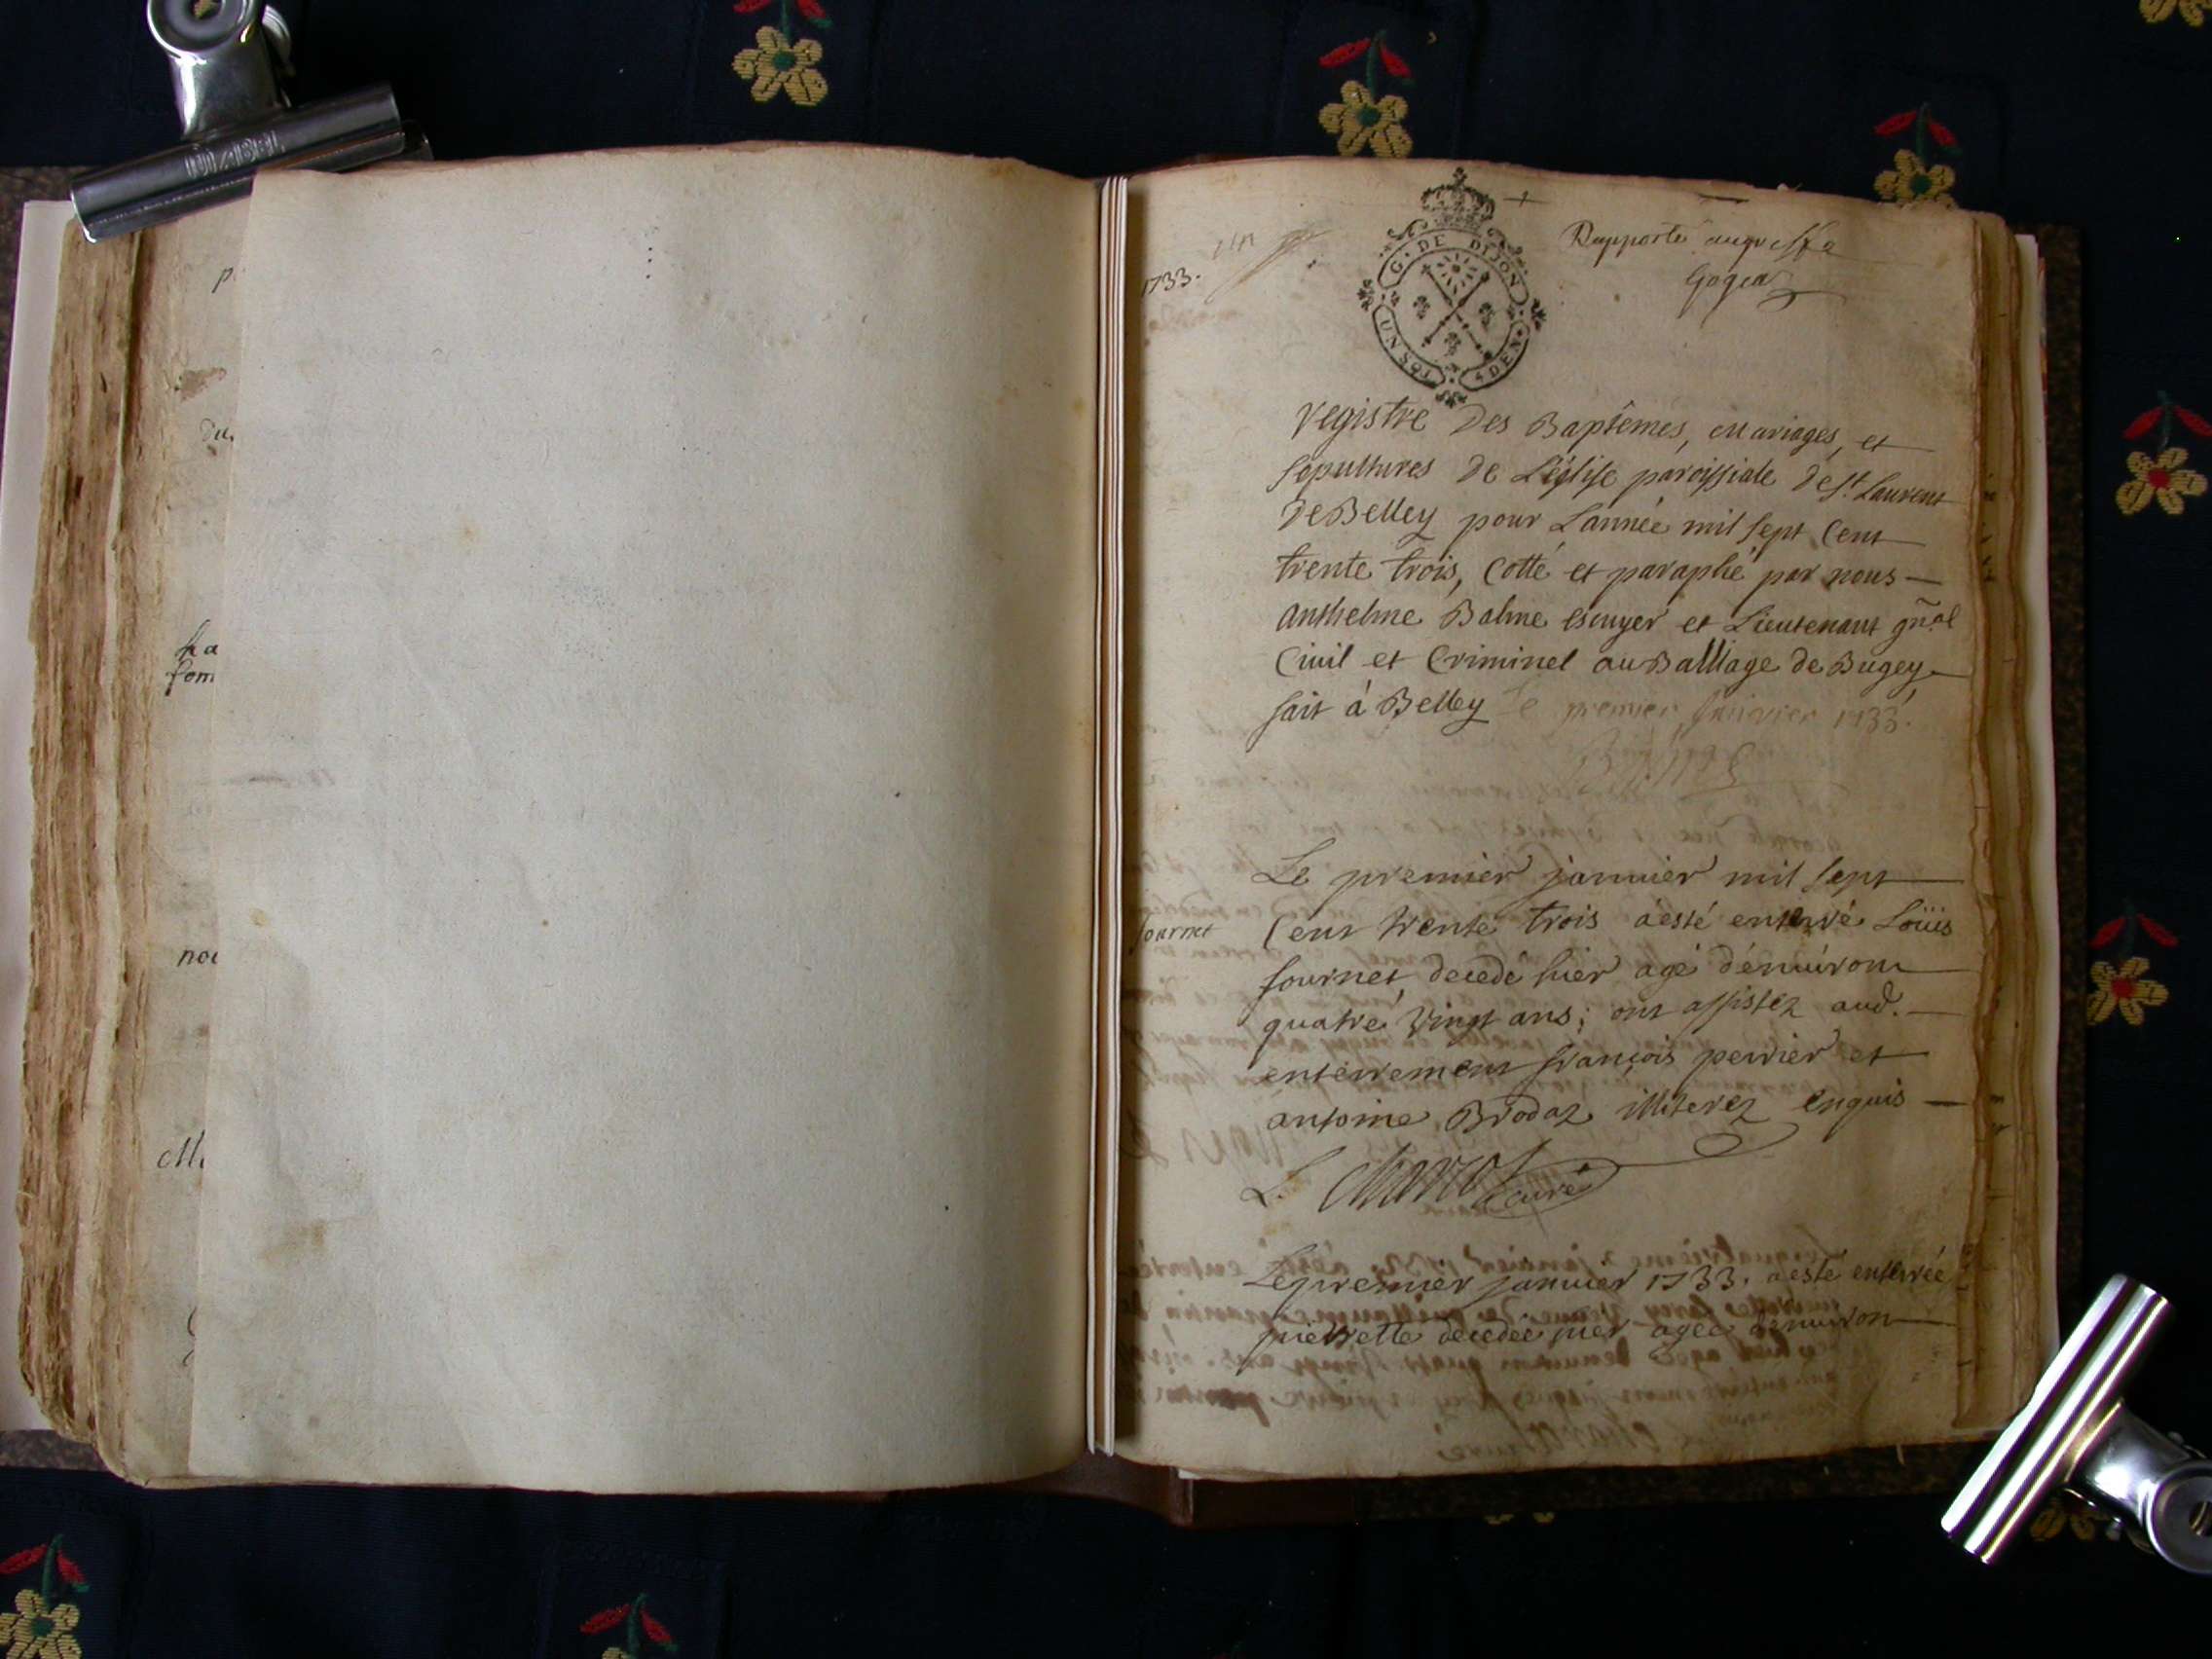 1733.
G. DE DIJON
UN SOL 4 DEN
Rapporté au greffe
Gogea
Registre Des Baptêmes, Mariages, et
sepultures de L'église paroissiale de St. Laurent
De Belley pour L'année mil sept Cent
trente trois, Cotté et paraphé par nous
Anthelme Balme escuyer et Lieutenant gñal
Civil et Criminel au Balliage de Bugey
fait à Belley le premier Janvier 1733.
Balme
Le premier janvier mil sept
fournet
Cent trente trois a esté enterré Loüis
fournet, decedé hier agé d'enuiron
quatre Vingt ans; ont assistez aud.
enterrement françois perrier et
antoine Brodaz illiterez enquis
L. Charcot curé
Le premier janvier 1733. a esté enterrée
pierrette decedée hier agée denuiron
p
du
ha
fom
noi